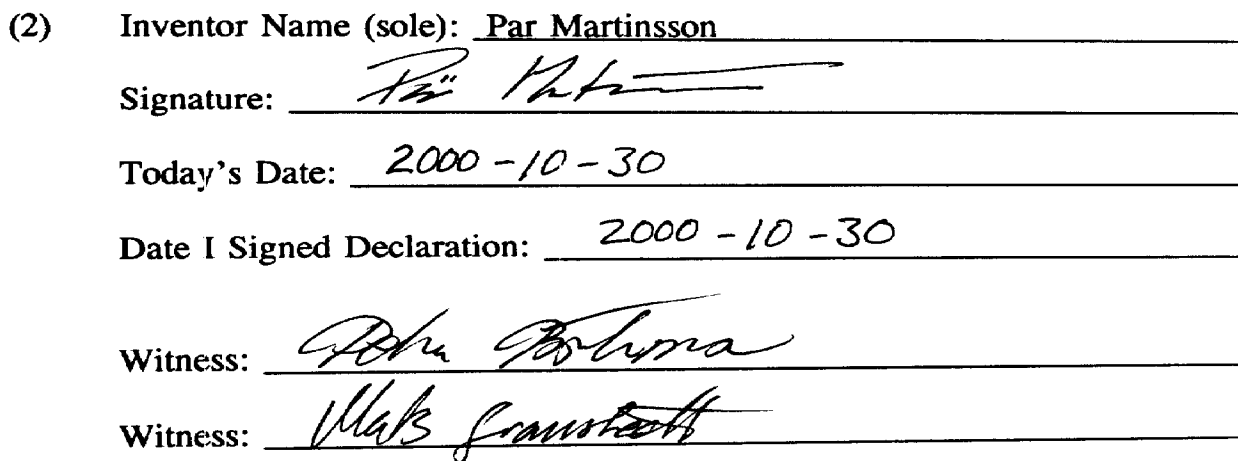 (2) Inventor Name (sole): Par Martinsson
Signature: Pär
Today's Date: 2000-10-30
Date I Signed Declaration: 2000-10-30
Witness:
Witness: Mats